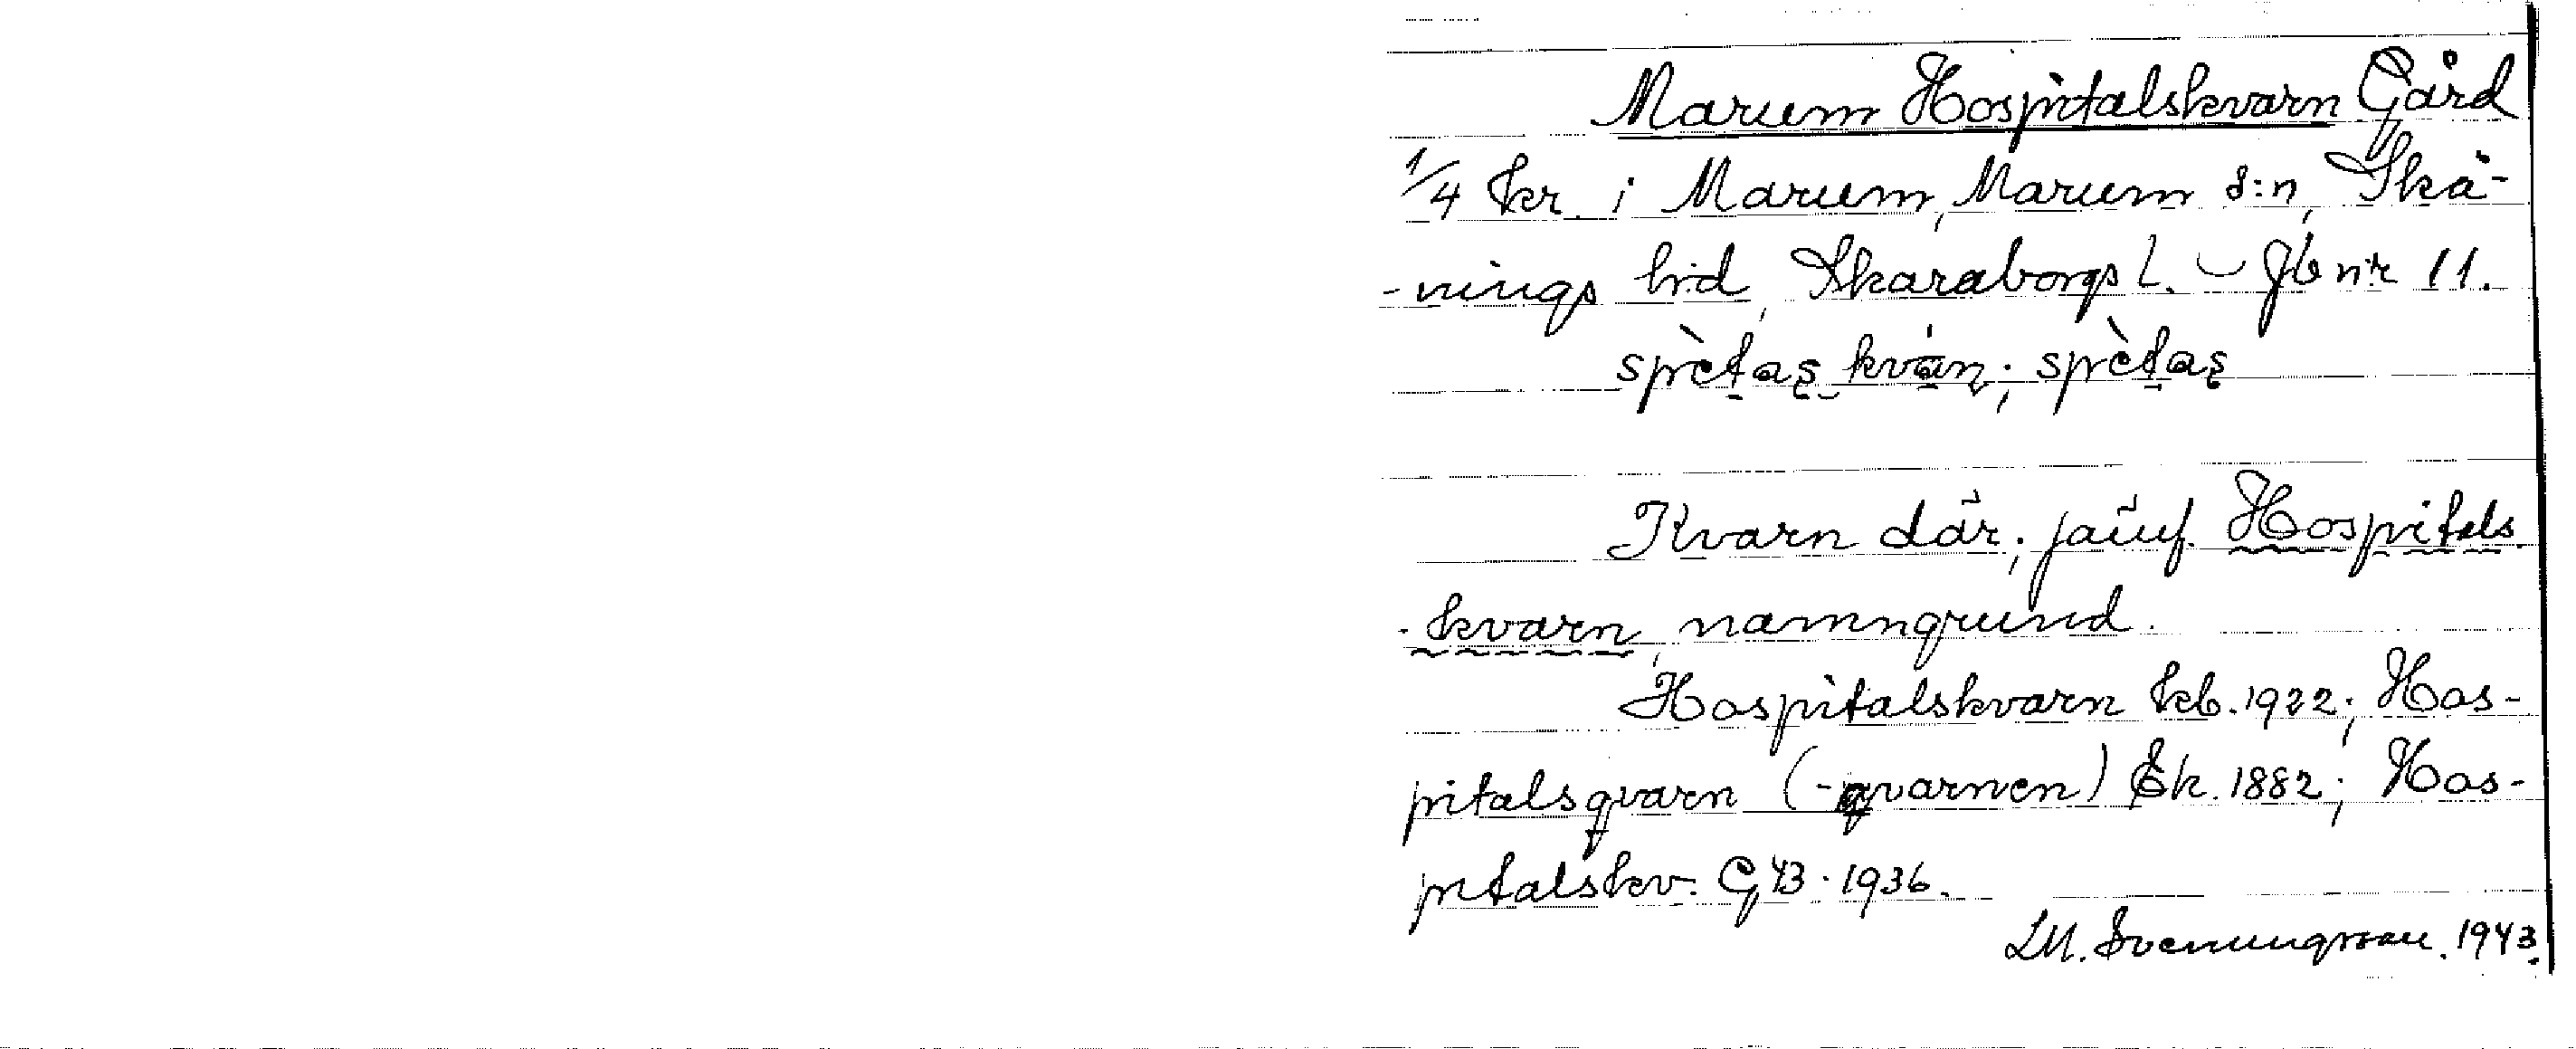 Marum Hospitalskvarn Gård
1/4 kr. i Marum, Marum s:n, Skå-
-nings h:d, Skaraborgs l. Jb n:r 11.
Kvarn där; jämf. Hospitals
-kvarn, namngrund.
Hospitalskvarn kb. 1922; Hos-
pitalsqvarn (-qvarnen) Ek. 1882; Hos-
pitalskv. GJB. 1936.
LM. Svenungsson. 1943.